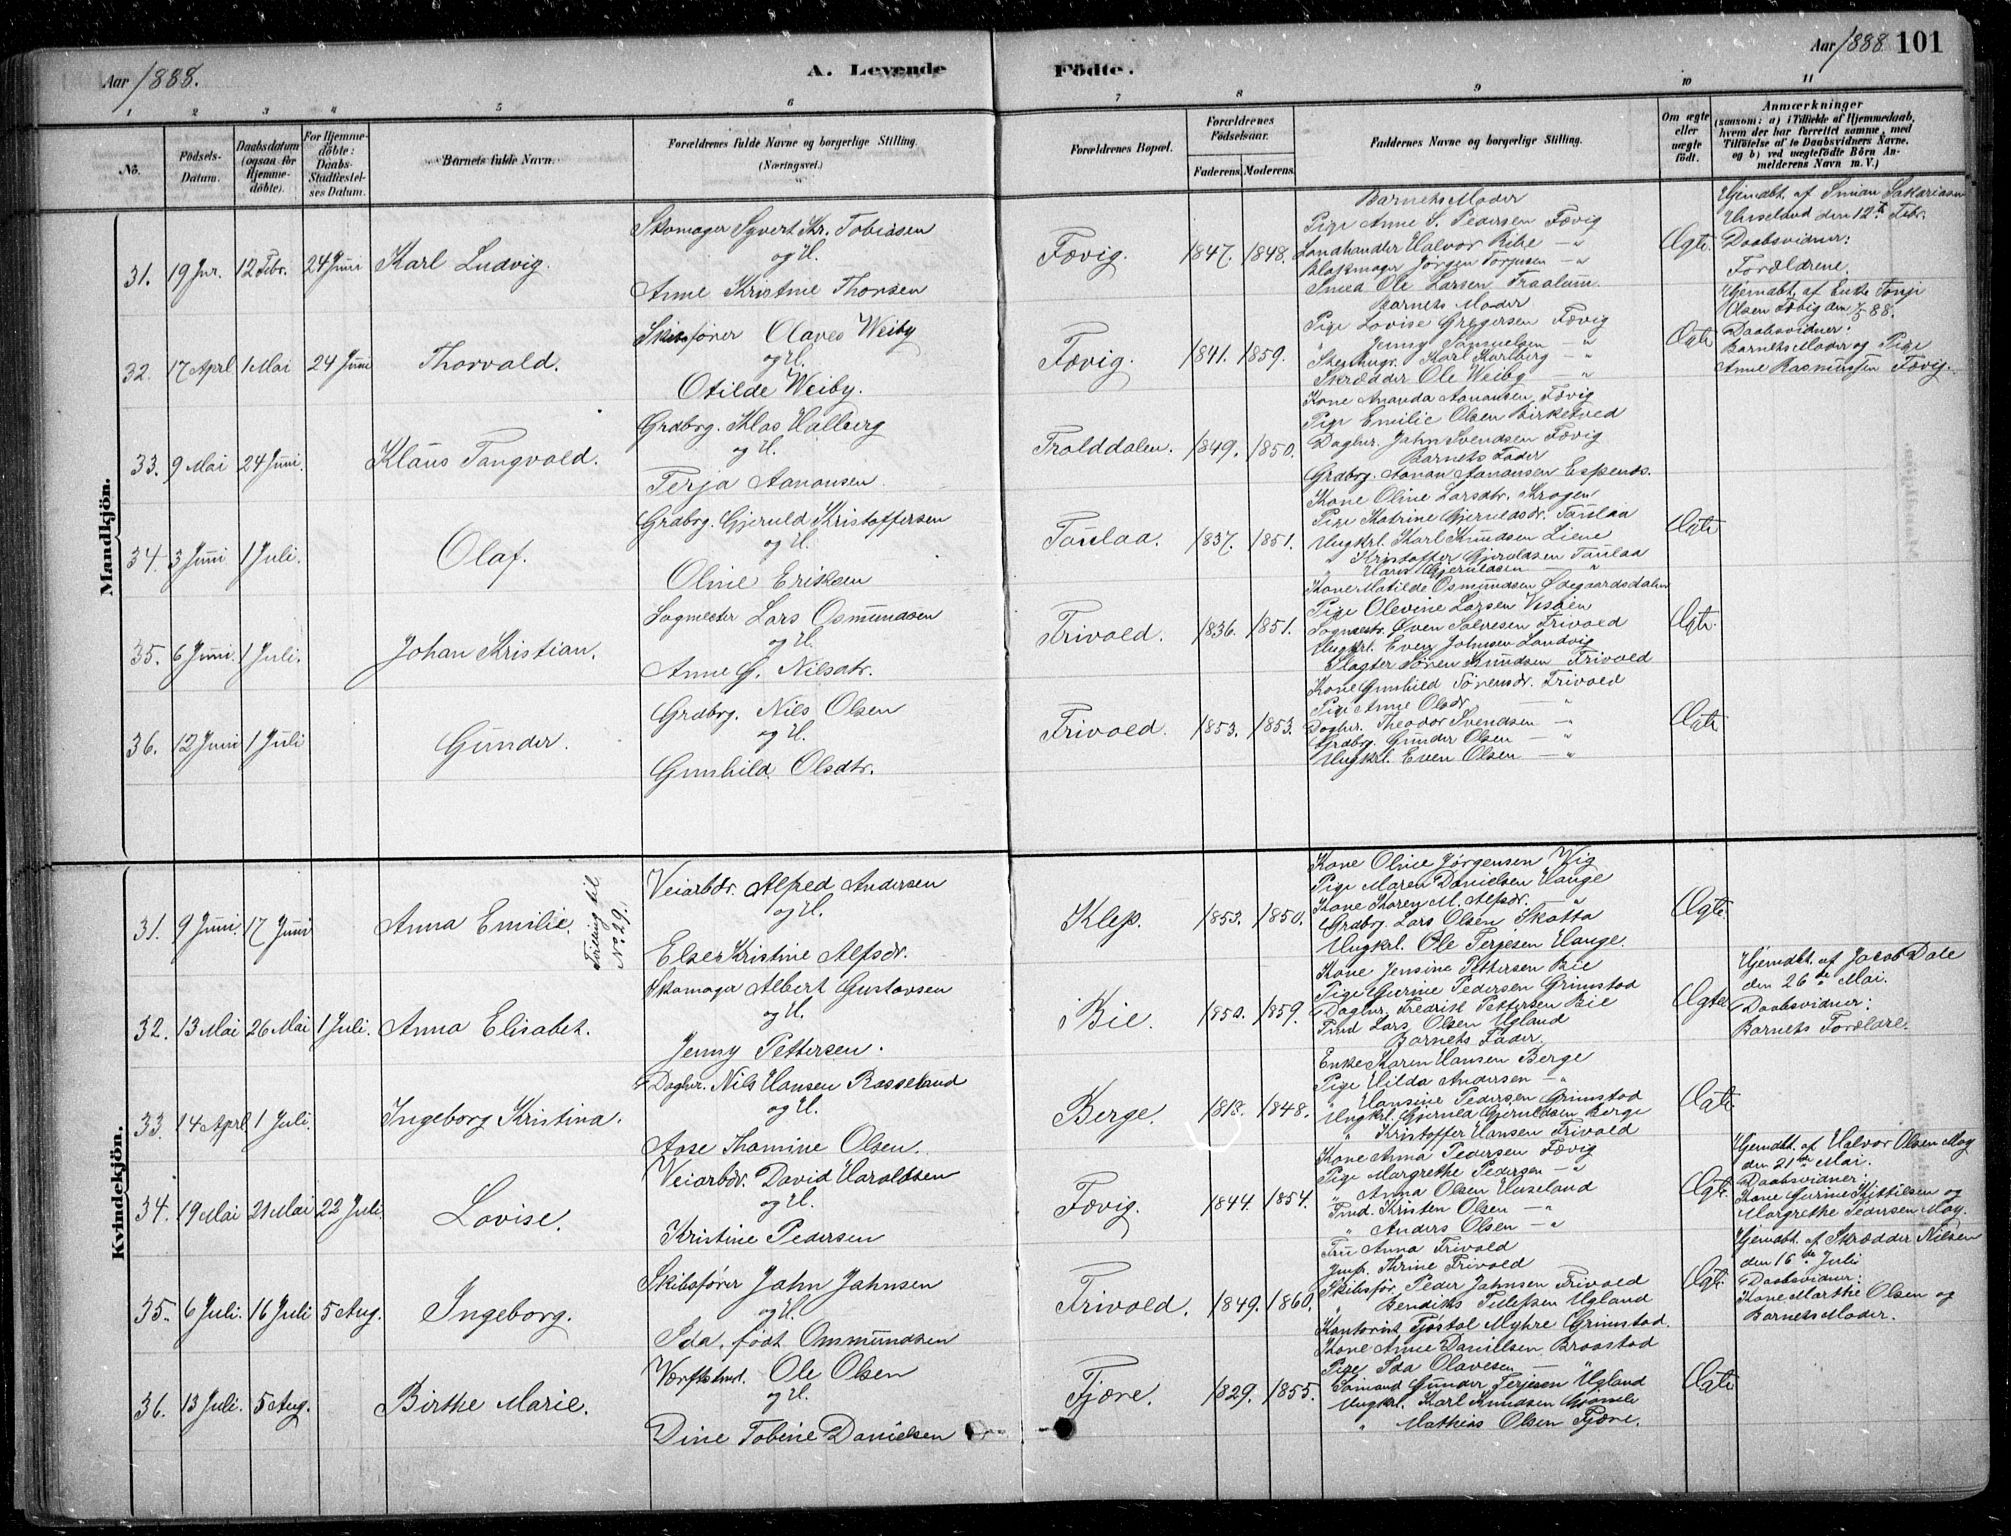 Aar 1888.
A. Levende Födte.
Aar 1888. 101
1 2 3 4 5 6 7 8 9 10 11
No.
Födsels-Datum.
Daabsdatum (ogsaa for Hjemme-döbte).
For Hjemme-döbte: Daabs-Stadfæstel-ses Datum.
Barnets fulde Navn.
Forældrenes fulde Navne og borgerlige Stilling. (Næringsvei.)
Forældrenes Bopæl.
Forældrenes Födselsaar.
Faderens. Moderens.
Faddernes Navne og borgerlige Stilling.
Om ægte eller uægte födt.
Anmærkninger
(saasom: a) i Tilfælde af Hjemmedaab, hvem der har forrettet samme, med Tilföielse af to Daabsvidners Navne, og b) ved uægtefödte Börn An-melderens Navn m. V.)
Mandkjön.
31. 19 Jnr. 12 Febr. 24 Juni Karl Ludvig.
Skomager Syvert Kr. Tobiasen
og H.
Anne Kristine Thorsen
Fævig. 1847. 1848.
Barnets Moder
Pige Anne S. Pedersen Fævig
Landhandler Halvor Bibe — "
Blokmager Jørgen Torjusen — "
Smed Ole Larsen Fraalum
Ægte.
Hjemdbt. af Simon Sakariasen
Huseland den 12te Febr.
Daabsvidner:
Forældrene.
32. 17 Aprl 1 Mai 24 Juni Thorvald.
Skibsfører Olaves Weiby
og H.
Otilde Weiby.
Fævig. 1841. 1859.
Barnets Moder
Pige Lovise Gregersen Fævig
" Jenny Samuelsen — "
Karl Karlberg — "
Skrædder Ole Weiby — "
Ægte
Hjemdbt. af Enke Tonji
Olsen Fævig den 1/5 88.
Daabsvidner:
Barnets Moder og Pige
Anne Rasmussen Fævig.
33. 9 Mai 24 Juni. Klaus Tangvald.
Grdbrg. Klas Halberg
og H.
Terja Aanonsen.
Trolddalen. 1849. 1850.
Kone Amanda Aanonsen Fævig
Pige Emilie Olsen Birketved
Daglnr. Jahn Svendsen Fævig
Barnets Fader
Grdbrg. Aanon Aanonsen Espenes.
34. 3 Juni 1 Juli. Olaf.
Grdbrg. Gjeruld Kristoffersen
og H.
Oline Eriksen
Taulaa. 1837. 1851.
Kone Oline Larsdtr. Krogen
Pige Katrine Gjeruldsdr. Taulaa
Ungkrl. Karl Knudsen Liene
" Kristoffer Gjeruldsen Taulaa
" Hans Gjeruldsen — "
Ægte
35. 6 Juni. 1 Juli. Johan Kristian.
Sogmester Lars Osmundsen
og H.
Anne G. Nilsdtr.
Frivold. 1836. 1851.
Kone Matilde Osmundsen Ødegaardsdalen
Pige Olevine Larsen Vesøen
Sogmestr. Øven Salvesen Frivold
Ungkrl. Even Johnsen Landvig
Slagter Søren Knudsen Frivold
Ægte.
36. 12 Juni 1 Juli Gunder.
Grdbrg. Nils Olsen
og H.
Gunhild Olsdtr.
Frivold. 1853. 1853.
Kone Gunhild Tønensdr. Frivold
Pige Anne Olsdr. — "
Daglnr. Theodor Svendsen — "
Grdbrg. Gunder Olsen — "
Ungkrl. Even Olsen — "
Ægte
Kvindekjön.
31. 9 Juni. 17 Juni Anna Emilie.
Tvilling til No 29.
Veiarbdr. Alfred Andersen
og H.
Else Kristine Alfsdr.
Klep. 1853. 1850.
Kone Oline Jørgensen Vig
Pige Maren Danielsen Hauge
Kone Karen M. Alfsdr. "
Grdbrg. Lars Olsen Skatta
Ungkrl. Ole Terjesen Hauge.
Ægte.
32. 13 Mai 26 Mai 1 Juli. Anna Elisabet.
Skomager Albert Gustavsen
og H.
Jenny Pettersen.
Bie. 1850. 1859.
Kone Jensine Pettersen Bie
Pige Gurine Pedersen Grimstad
Daglnr. Fredrik Pettersen Bie
Tmd Lars Olsen Ugland
Barnets Fader.
Ægte
Hjemdbt. af Jacob Dale
den 26de Mai.
Daabsvidner:
Barnets Forældre.
33. 14 Aprl 1 Juli. Ingeborg Kristina.
Daglnr. Nils Hansen Rosseland
og H.
Aase Thomine Olsen.
Berge. 1818. 1848.
Enke Karen Hansen Berge
Pige Hilda Andersen — "
" Hansine Pedersen Grimstad
Ungkrl. Gjeruld Gjeruldsen Berge
" Kristoffer Hansen Frivold
Ægte
34. 19 Mai 21 Mai 22 Juli. Lovise.
Veiarbdr. David Haraldsen
og H.
Kristine Pedersen
Fævig. 1844. 1854.
Kone Anna Pedersen Fævig
Pige Margrethe Pedersen — "
" Anna Olsen Huseland
Tmd. Kristen Olsen — "
" Anders Olsen — "
Ægte
Hjemdbt. af Halvor Olsen Moy
den 21de Mai.
Daabsvidner:
Kone Gurine Kittilsen og
Margrethe Pedersen Moy.
35. 6 Juli. 16 Juli 5 Aug. Ingeborg.
Skibsfører Jahn Jahnsen
og H.
Ida, født Ommundsen
Frivold. 1849. 1860.
Fru Anna Frivold
Jmf. Thrine Frivold
Skibsfør. Peder Jahnsen Frivold
" Bendiks Tellefsen Ugland
Kontorist Tjøstol Myhre Grimstad.
Ægte
Hjemdbt. af Skrædder Nilsen
den 16de Juli
Daabsvidner:
Kone Marthe Olsen og
Barnets Moder.
36. 13 Juli. 5 Aug. Birthe Marie.
Værftstmd. Ole Olsen
og H.
Dine Tobine Danielsen
Fjære. 1829. 1855.
Kone Anne Danielsen Braastad
Pige Ida Olavesen — "
Sømand Gunder Terjesen Ugland
Ungkrl. Karl Knudsen
" Mathias Olsen Fjære.
Ægte